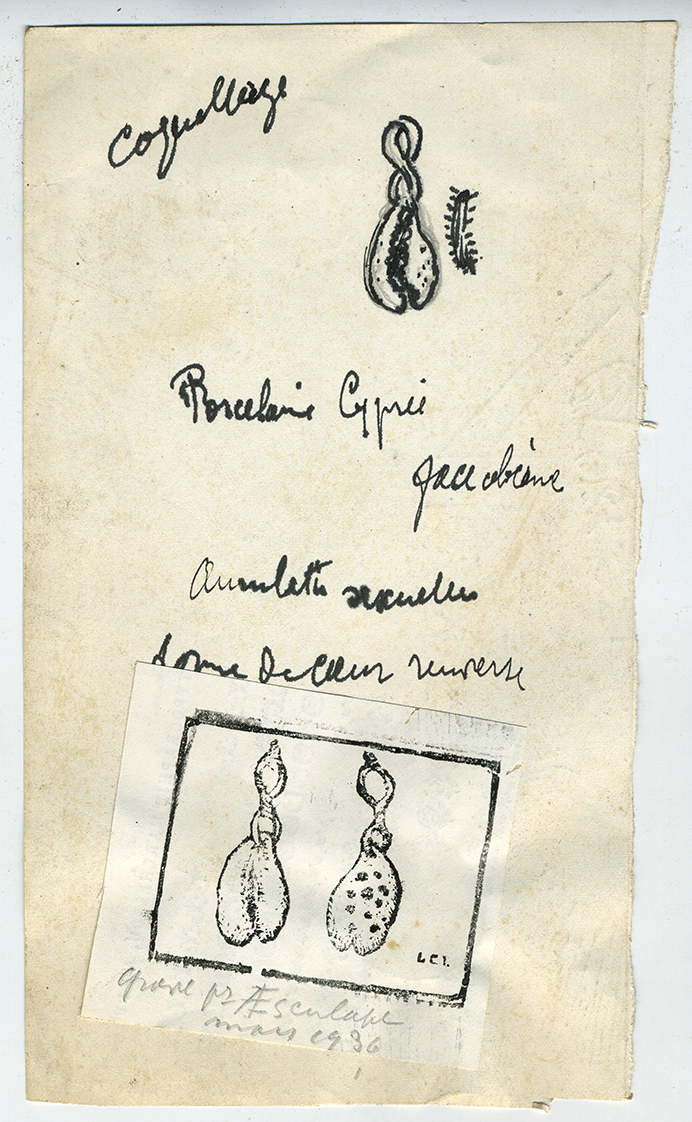 Coquillage
Porcelaine Cyprée
Amulette sexuelles
forme de Cœur renverse
L C I.
gravé pr Æsculape
mars 1936